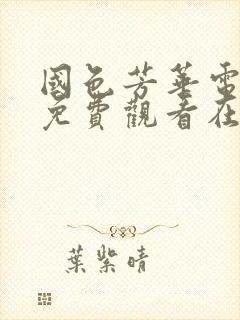 國色芳華電
免費觀看在
葉紫晴